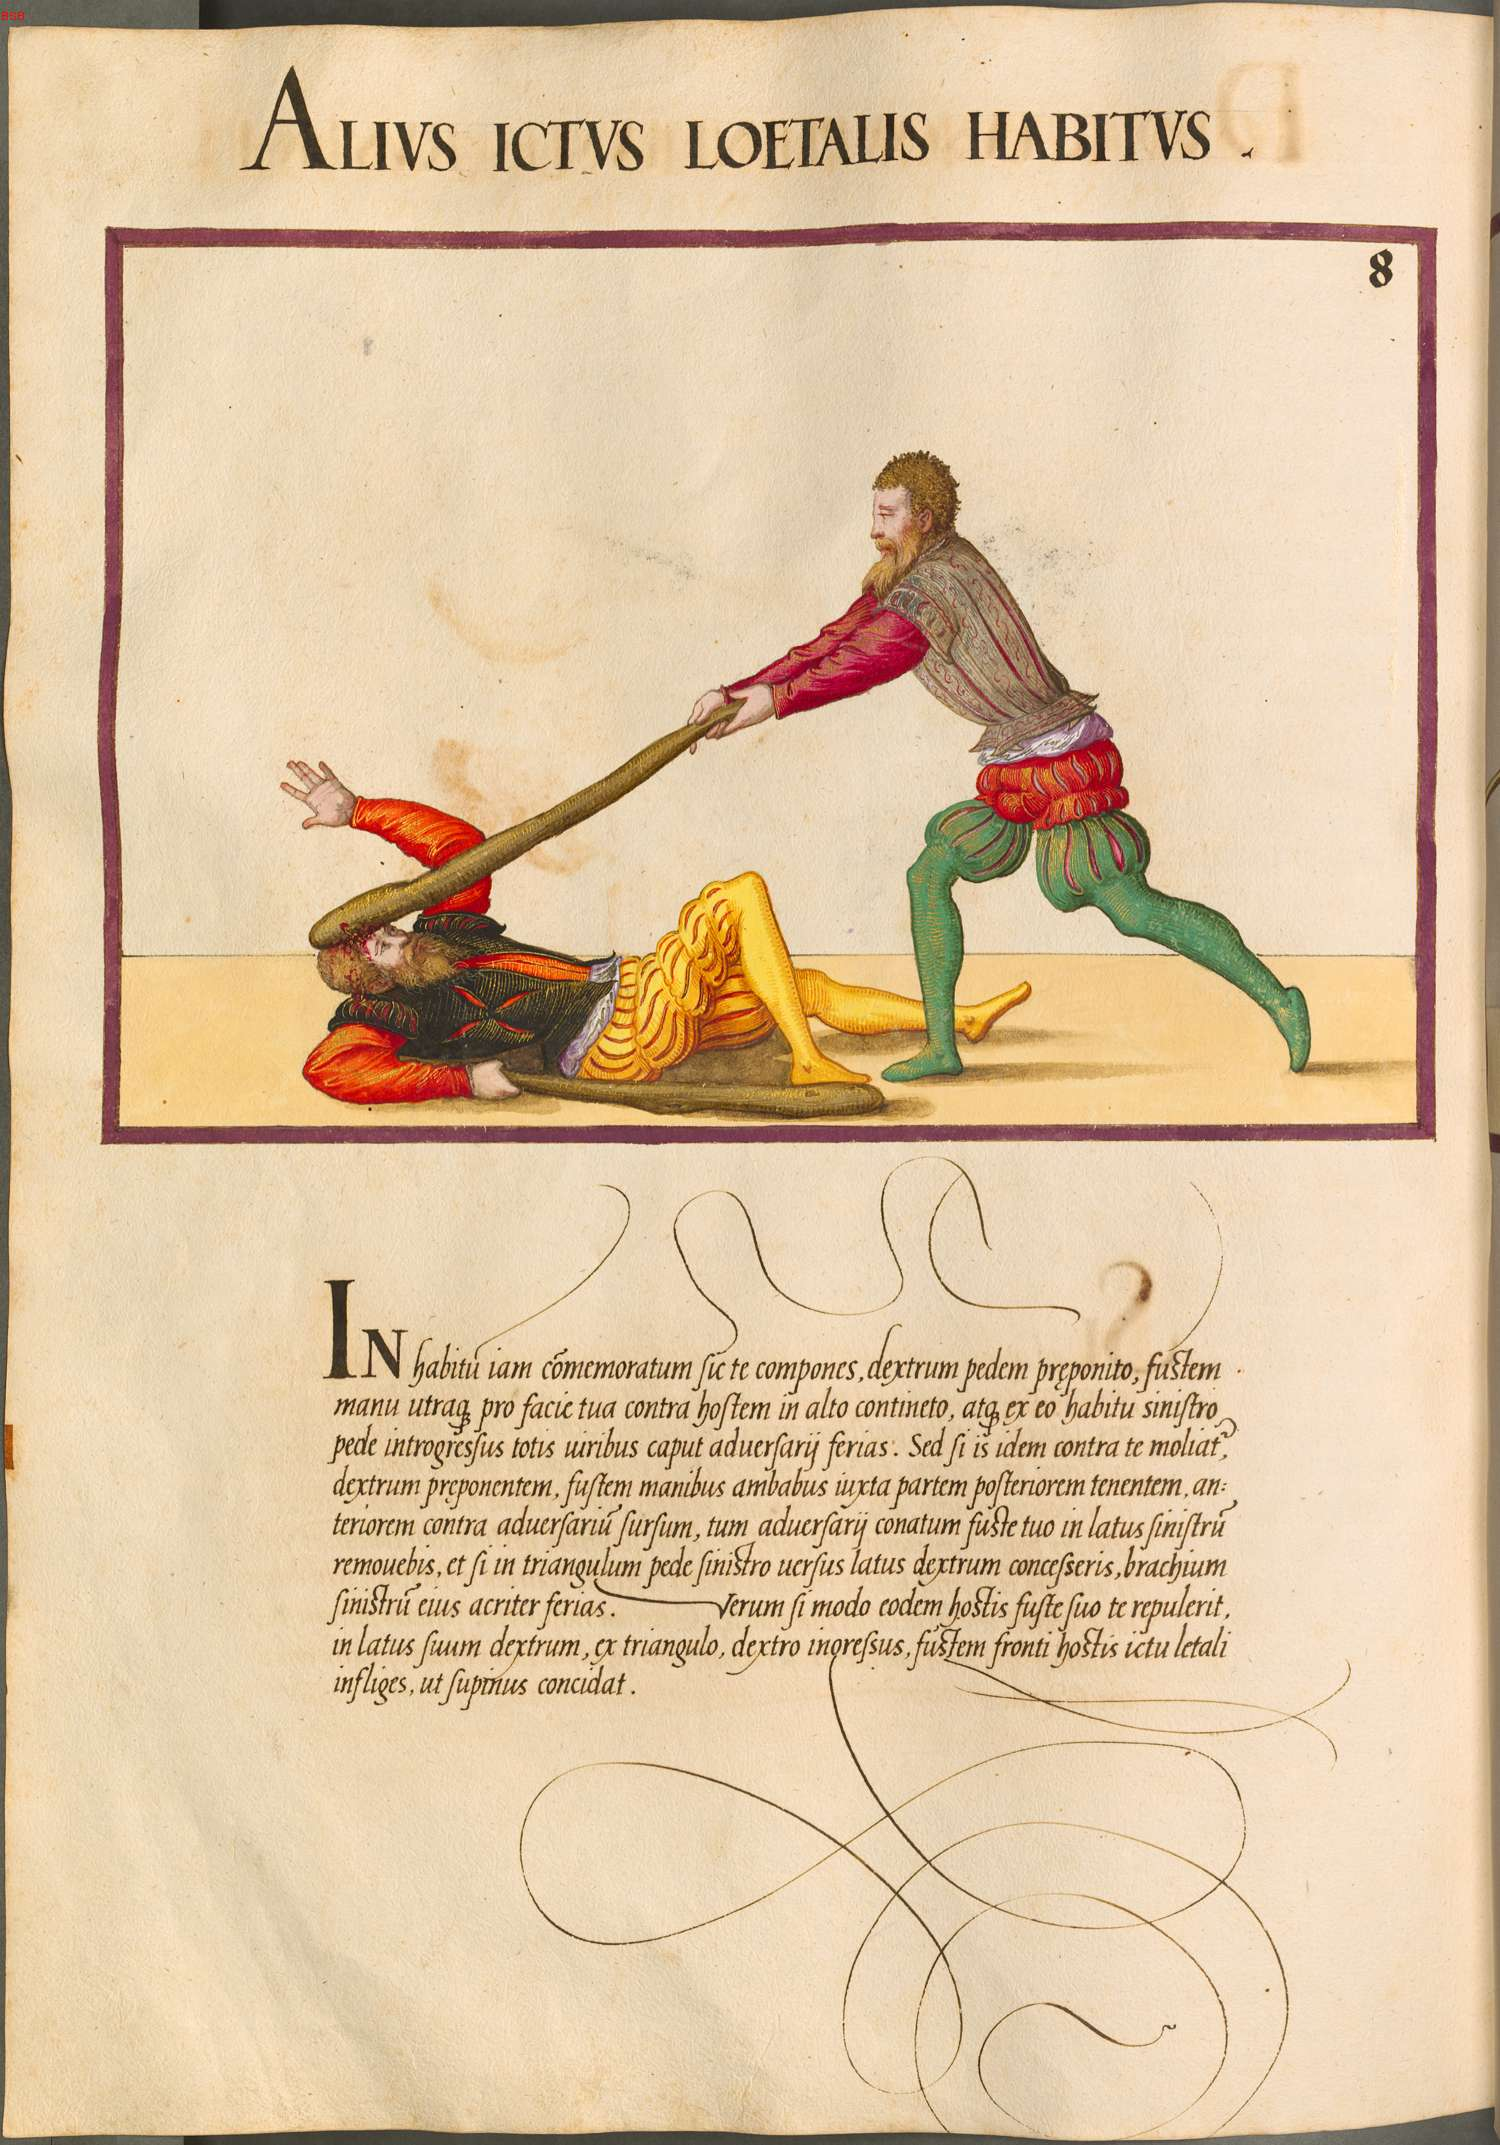 BSB
ALIVS ICTVS LOETALIS HABITVS.
8
IN habitū iam cōmemoratum sic te compones, dextrum pedem pręponito, fustem
manu utraq; pro facie tua contra hostem in alto contineto, atq; ex eo habitu sinistro
pede introgressus totis uiribus caput aduersarij ferias. Sed si is idem contra te moliat᷑,
dextrum pręponentem, fustem manibus ambabus iuxta partem posteriorem tenentem, an:
teriorem contra aduersariū sursum, tum aduersarij conatum fuste tuo in latus sinistrū
remouebis, et si in triangulum pede sinistro uersus latus dextrum concesseris, brachium
sinistrū eius acriter ferias. Verum si modo eodem hostis fuste suo te repulerit,
in latus suum dextrum, ex triangulo, dextro ingressus, fustem fronti hostis ictu letali
infliges, ut supinus concidat.